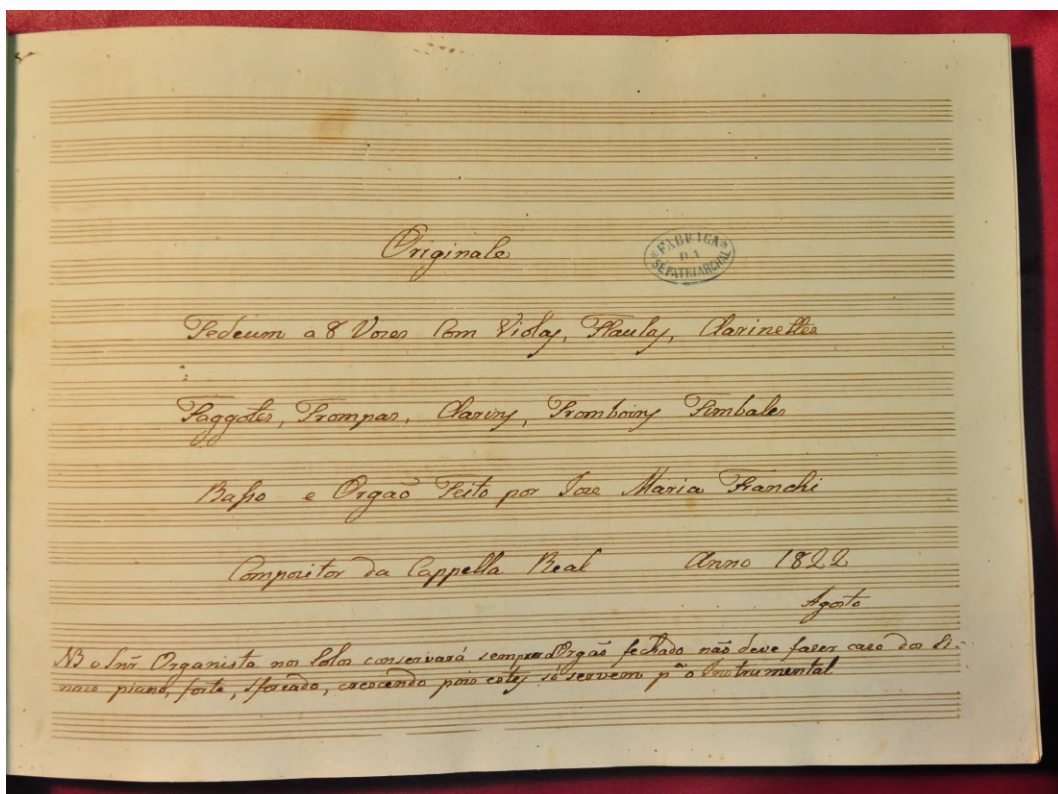 Originale
FABRICA
DA
SÉ PATRIARCHAL
Tedeum a 8 Vozes Com Violas, Flautas, Clarinettes
Faggotes, Trompas, Clarins, Tromboins Timbales
Basso e Orgaõ Feito por Joze Maria Franchi
Compozitor da Cappella Real Anno 1822
Agosto
NB o Snr̃ Organista nos Solos conservará sempre o Orgaõ fechado naõ deve fazer cazo dos Si-
naes piano, forte, sforzado, crescendo pois estes só servem pª o Instrumental